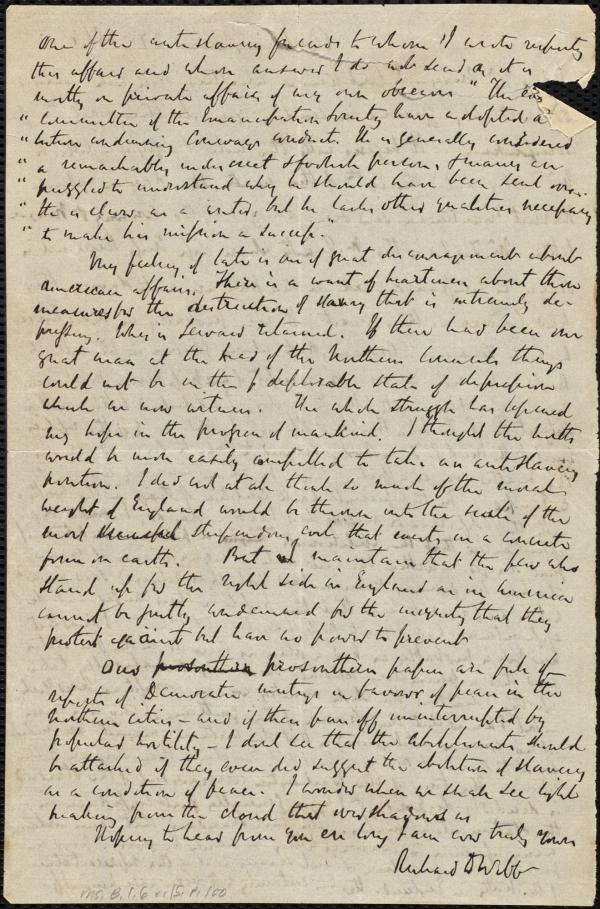 One of the antislavery friends to whom I wrote respecting
this affair and whose answer I do not send as it is
mostly on private affairs of my own observes "The
" Committee of the Emancipation Society have adopted a
" condemning Conways conduct. He is generally considered
" a remarkably indiscreet & foolish person, & many are
" puzzled to understand why he should have been sent over.
" He is clever as a writer, but he lacks other qualities necessary
" to make his mission a success."
My feeling of late is one of great discouragement about
American affairs. There is a want of heartiness about these
measures for the destruction of slavery that is extremely de-
pressing. Why is Seward retained. If there had been one
great man at the head of the Northern Councils things
could not be in the deplorable state of depression
which we now witness. The whole struggle has lowered
my hope in the progress of mankind. I thought the North
would be more easily compelled to take an antislavery
position. I did not at all think so much of the moral
weight of England would be thrown into the scale of the
most stupendous evil that exists in a concrete
form on earth. But I maintain that the few who
stand up for the right side in England as in America
cannot be justly condemned for the iniquity that they
protest against but have no power to prevent
Our prosouthern papers are full of
reports of Democratic meetings in favour of peace in the
Northern cities – and if these pass off uninterrupted by
popular hostility – I dont see that the abolitionists should
be attacked if they even did suggest the abolition of slavery
as a condition of peace. I wonder when we shall see light
breaking from the cloud that overshadows us
Hoping to hear from you ere long I am ever truly yours
Richard D Webb
Ms. B.1.6 v.15. p.100